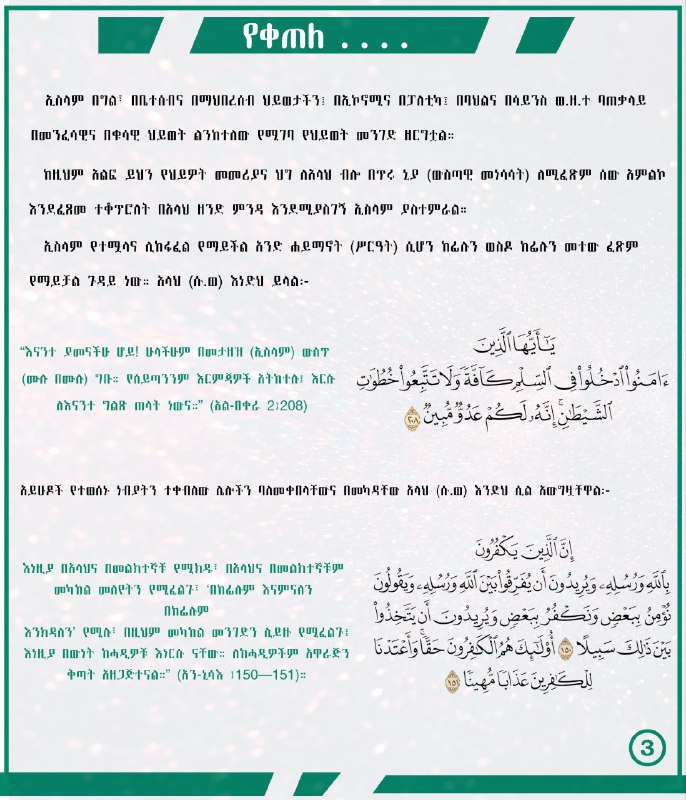 የቀጠለ . . . .
ኢስላም በግል፣ በቤተሰብና በማህበረሰብ ህይወታችን፤ በኢኮኖሚና በፓለቲካ፤ በባህልና በሳይንስ ወ.ዘ.ተ ባጠቃላይ
በመንፈሳዊና በቁሳዊ ህይወት ልንከተለው የሚገባ የህይወት መንገድ ዘርግቷል።
ከዚህም አልፎ ይህን የህይዎት መመሪያና ህግ ለአላህ ብሎ በጥሩ ኒያ (ውስጣዊ መነሳሳት) ለሚፈጽም ሰው አምልኮ
እንደፈጸመ ተቀጥሮለት በአላህ ዘንድ ምንዳ እንደሚያስገኝ ኢስላም ያስተምራል።
ኢስላም የተሟላና ሊከፋፈል የማይችል አንድ ሐይማኖት (ሥርዓት) ሲሆን ከፊሉን ወስዶ ከፊሉን መተው ፈጽም
የማይቻል ጉዳይ ነው። አላህ (ሱ.ወ) እነድህ ይላል፡-
“እናንተ ያመናችሁ ሆይ! ሁላችሁም በመታዘዝ (ኢስላም) ውስጥ
(ሙሉ በሙሉ) ግቡ። የሰይጣንንም እርምጃዎች አትከተሉ፤ እርሱ
ለእናንተ ግልጽ ጠላት ነውና።” (አል-በቀራ 2፤208)
يَـٰٓأَيُّهَا ٱلَّذِينَ
ءَامَنُوا۟ ٱدْخُلُوا۟ فِى ٱلسِّلْمِ كَآفَّةً وَلَا تَتَّبِعُوا۟ خُطُوَٰتِ
ٱلشَّيْطَـٰنِ ۚ إِنَّهُۥ لَكُمْ عَدُوٌّ مُّبِينٌ ٢٠٨
አይሁዶች የተወሰኑ ነብያትን ተቀብለው ሌሎችን ባለመቀበላቸውና በመካዳቸው አላህ (ሱ.ወ) እንድህ ሲል አውግዟቸዋል፡-
እነዚያ በአላህና በመልክተኛቹ የሚክዱ፣ በአላህና በመልክተኛቹም
መካከል መለየትን የሚፈልጉ፣ ‘በከፊሉም እናምናለን
በከፊሉም
እንክዳለን’ የሚሉ፣ በዚህም መካከል መንገድን ሊይዙ የሚፈልጉ፤
እነዚያ በውነት ከሓዲዎቹ እነርሱ ናቸው። ለከሓዲዎችም አዋራጅን
ቅጣት አዘጋጅተናል።” (አን-ኒሳእ ፤150—151)።
إِنَّ ٱلَّذِينَ يَكْفُرُونَ
بِٱللَّهِ وَرُسُلِهِۦ وَيُرِيدُونَ أَن يُفَرِّقُوا۟ بَيْنَ ٱللَّهِ وَرُسُلِهِۦ وَيَقُولُونَ
نُؤْمِنُ بِبَعْضٍ وَنَكْفُرُ بِبَعْضٍ وَيُرِيدُونَ أَن يَتَّخِذُوا۟
بَيْنَ ذَٰلِكَ سَبِيلًا ١٥٠ أُو۟لَـٰٓئِكَ هُمُ ٱلْكَـٰفِرُونَ حَقًّا ۚ وَأَعْتَدْنَا
لِلْكَـٰفِرِينَ عَذَابًا مُّهِينًا ١٥١
3